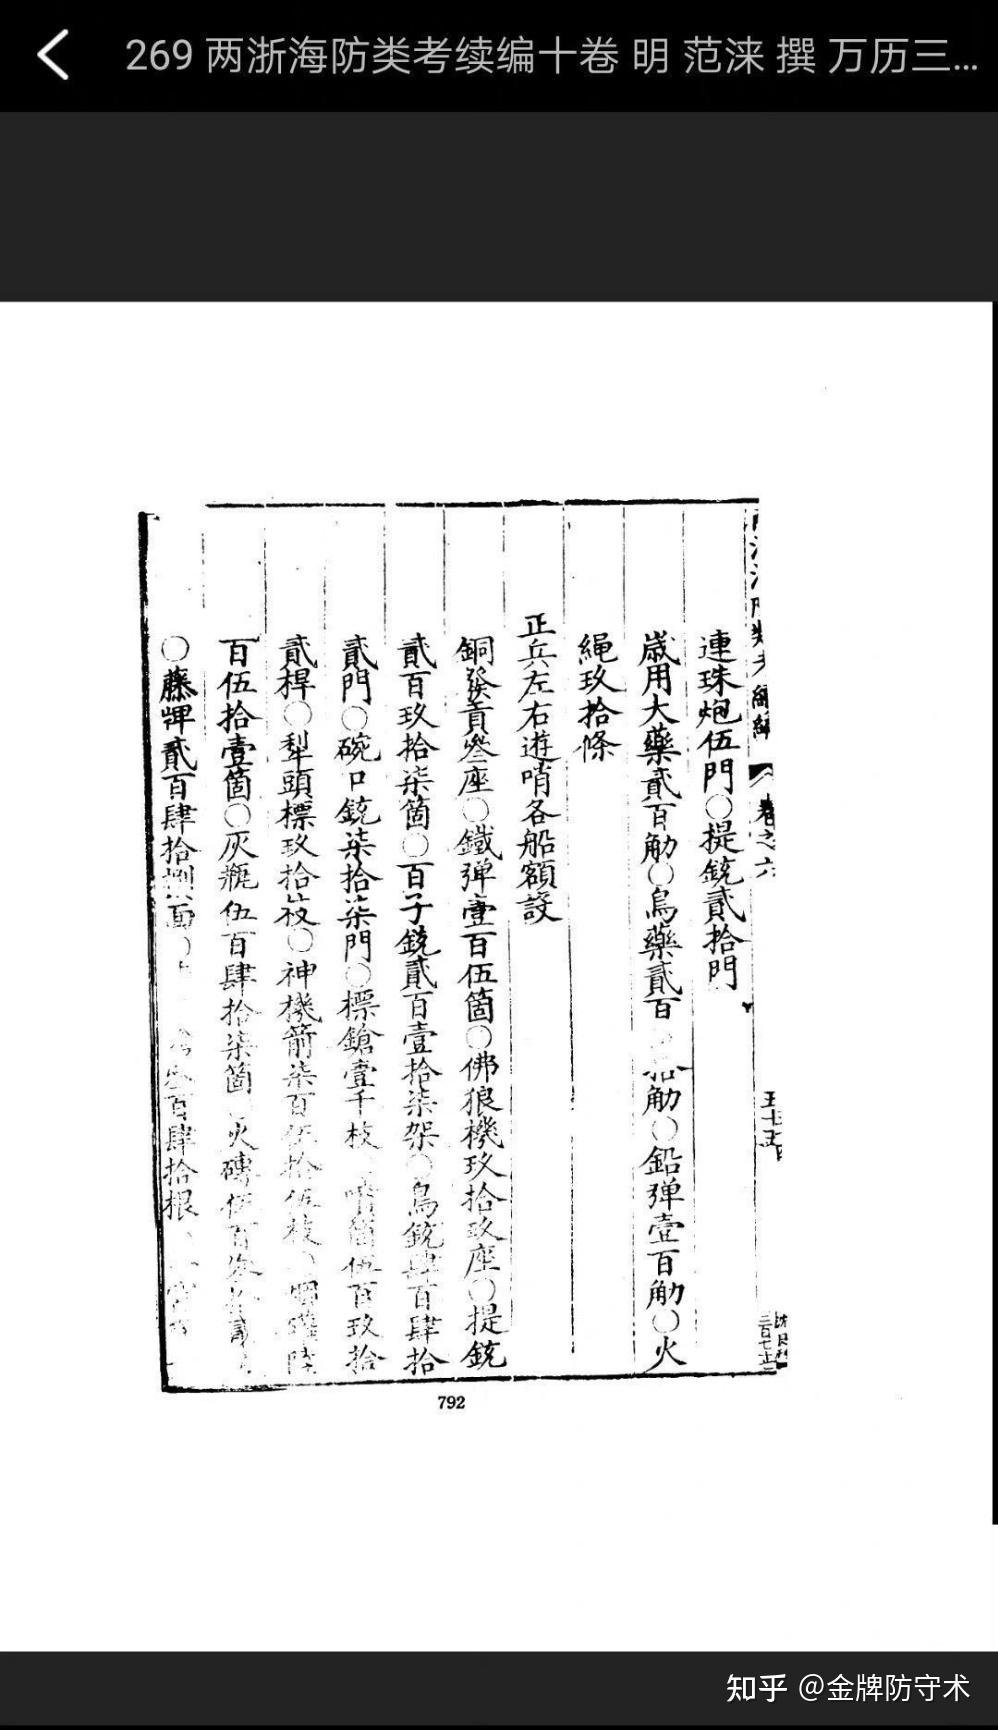 269 两浙海防类考续编十卷 明 范涞 撰 万历三...
卷之六
連珠炮伍門〇提銃貳拾門
歲用大藥貳百觔〇鳥藥貳百拾觔〇鉛彈壹百觔〇火
繩玖拾條
正兵左右遊哨各船額設
銅發貢叄座〇鐵彈壹百伍箇〇佛狼機玖拾玖座〇提銃
貳百玖拾柒箇〇百子銃貳百壹拾柒架〇鳥銃肆百肆拾
貳門〇碗口銃柒拾柒門〇標鎗壹千枝噴筒伍百玖拾
貳桿〇犁頭標玖拾枝〇神機箭柒百伍拾伍枝〇煙罐陸
百伍拾壹箇〇灰瓶伍百肆拾柒箇火磚伍百
〇藤牌貳百肆拾捌面〇百肆拾根
792
知乎 @金牌防守术